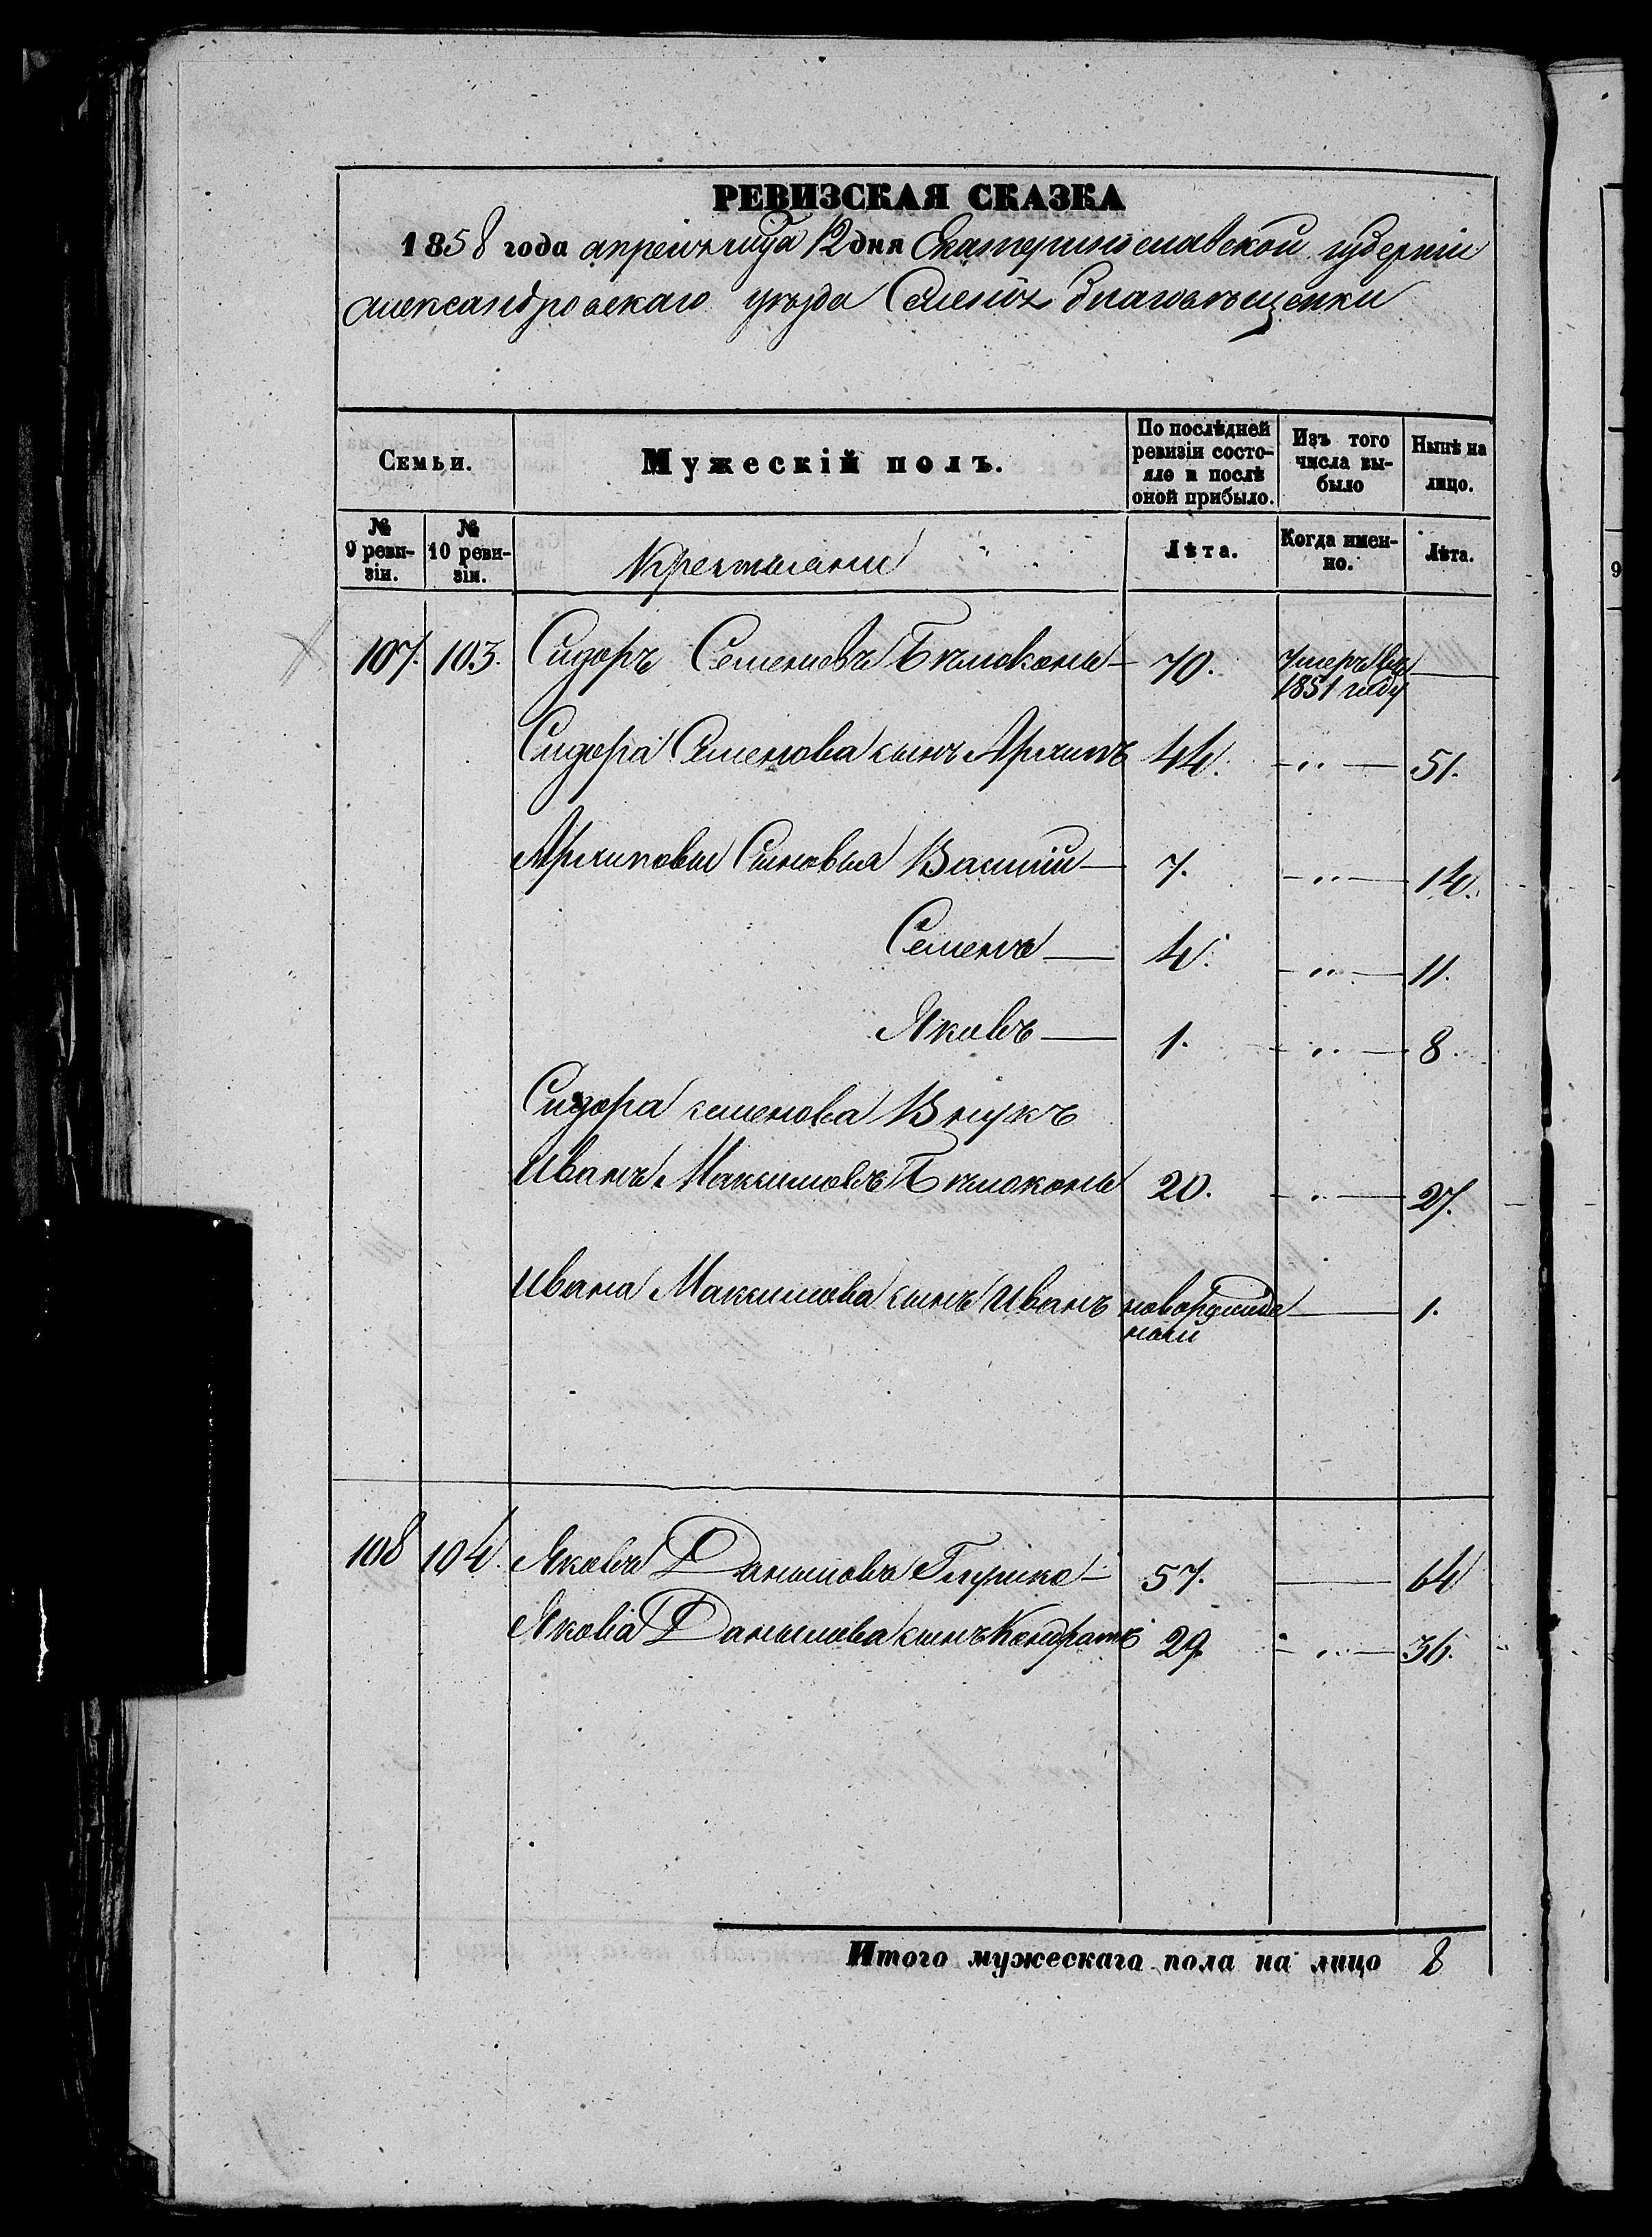 РЕВИЗСКАЯ СКАЗКА
1858 года апреля мца 12 дня Екатеринославской губерніи
Александровскаго уѣзда Селенія Благовѣщенки
Семьи.
Мужескій полъ.
По послѣдней ревизіи состояло и послѣ оной прибыло.
Изъ того числа выбыло
Нынѣ на лицо.
№ 9 ревизіи.
№ 10 ревизіи.
Крестьяне
Лѣта.
Когда именно.
Лѣта.
107. 103. Сидоръ Семеновъ Бѣлоконь — 70. Умеръ въ 1851 году —
Сидора Семенова сынъ Архипъ 44. - " — 51.
Архиповы Сыновья Василій — 7. - " — 14.
Семенъ — 4. - " — 11.
Яковъ — 1. - " — 8.
Сидора Семенова Внукъ
Иванъ Максимовъ Бѣлоконь 20. - " — 27.
Ивана Максимова сынъ Иванъ новорожденный — 1.
108 104. Яковъ Даниловъ Глушко — 57. — 64
Якова Данилова сынъ Кондратъ 29. - " — 36.
Итого мужескаго пола на лицо 8